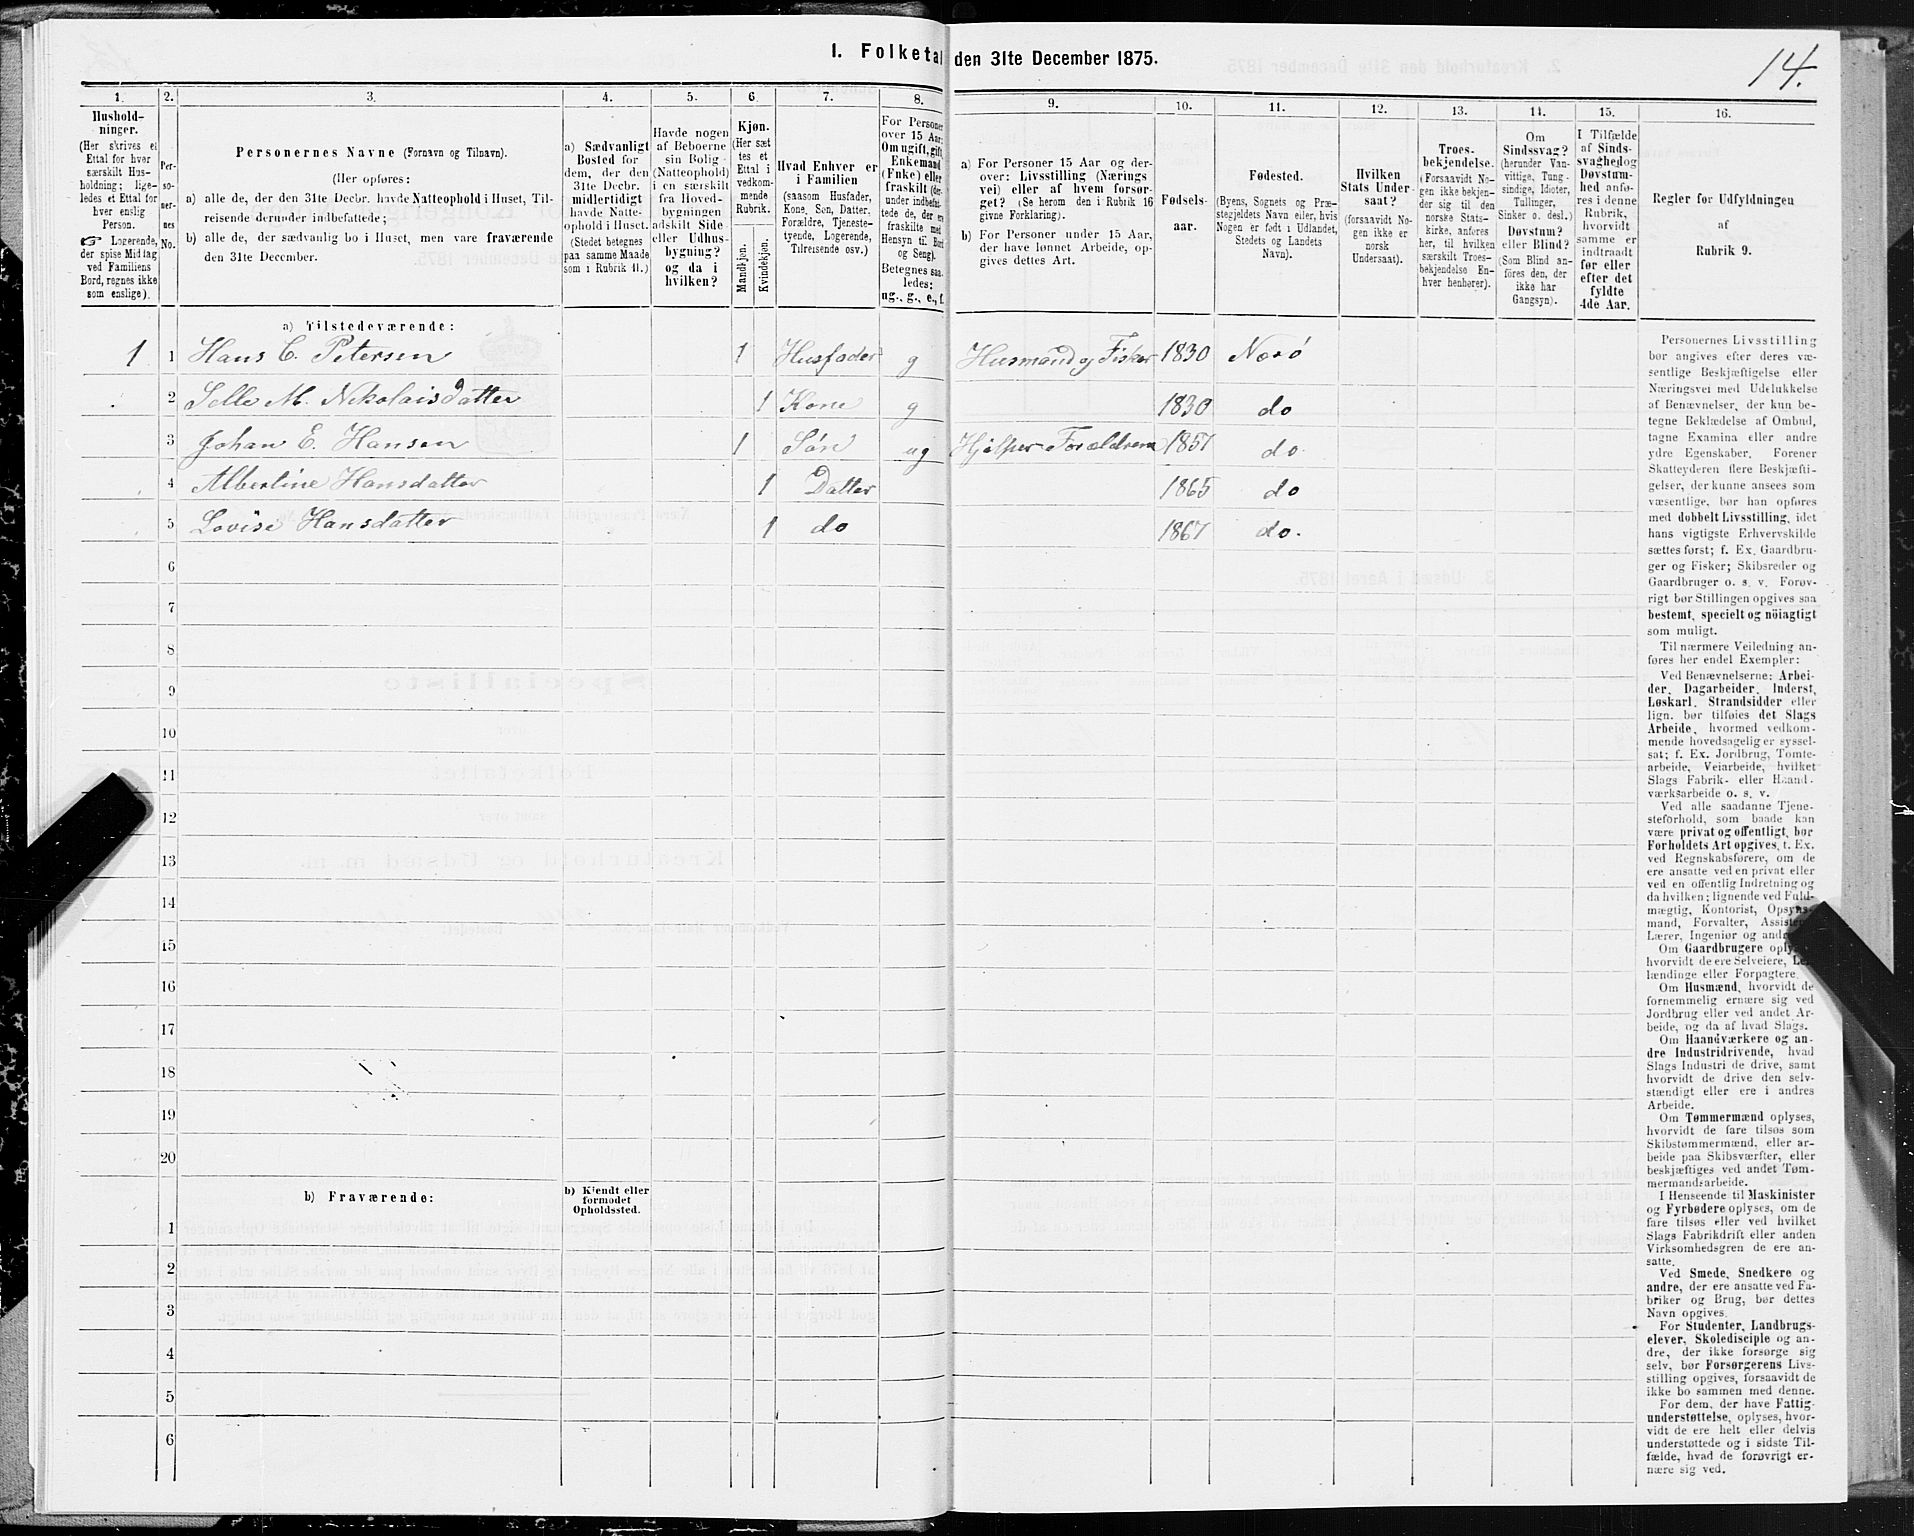 I. Folketal den 31te December 1875.
14.
1.
2.
3.
4.
5.
6.
7.
8.
9.
10.
11.
12.
13.
14.
15.
16.
Hushold-
ninger.
(Her skrives et
Ettal for hver
særskilt Hus-
holdning; lige-
ledes et Ettal for
hver enslig
Person.
☞ Logerende,
der spise Middag
ved Familiens
Bord, regnes ikke
som enslige).
Per-
so-
ner-
nes
No.
Personernes Navne (Fornavn og Tilnavn).
(Her opføres:
a) alle de, der den 31te Decbr. havde Natteophold i Huset, Til-
reisende derunder indbefattede;
b) alle de, der sædvanlig bo i Huset, men vare fraværende
den 31te December.
a) Sædvanligt
Bosted for
dem, der den
31te Decbr.
midlertidigt
havde Natte-
ophold i Huset.
(Stedet betegnes
paa samme Maade
som i Rubrik 11.)
Havde nogen
af Beboerne
sin Bolig
(Natteophold)
i en særskilt
fra Hoved-
bygningen
adskilt Side-
eller Udhus-
bygning?
og da i
hvilken?
Kjøn.
(Her sæt-
tes et
Ettal i
vedkom-
mende
Rubrik.
Mandkjøn.
Kvindekjøn.
Hvad Enhver er
i Familien
(saasom Husfader,
Kone, Søn, Datter,
Forældre, Tjeneste-
tyende, Logerende,
Tilreisende osv.)
For Personer
over 15 Aar:
Om ugift, gift,
Enkemand
(Enke) eller
fraskilt (der-
under indbefat-
tede de, der ere
fraskilte med
Hensyn til Bord
og Seng).
Betegnes saa-
ledes:
ug., g., e., f.
a) For Personer 15 Aar og der-
over: Livsstilling (Nærings-
vei) eller af hvem forsør-
get? (Se herom den i Rubrik 16
givne Forklaring).
b) For Personer under 15 Aar,
der have lønnet Arbeide, op-
gives dettes Art.
Fødsels-
aar.
Fødested.
(Byens, Sognets og Præ-
stegjeldets Navn eller, hvis
Nogen er født i Udlandet,
Stedets og Landets
Navn).
Hvilken
Stats Under-
saat?
(forsaavidt No-
gen ikke er
norsk
Undersaat).
Troes-
bekjendelse.
(Forsaavidt No-
gen ikke bekjen-
der sig til den
norske Stats-
kirke, anføres
her, til hvilken
særskilt Troes-
bekjendelse En-
hver henhører).
Om
Sindssvag?
(herunder Van-
vittige, Tung-
sindige, Idioter,
Tullinger,
Sinker o. desl.)
Døvstum?
eller Blind?
(Som Blind an-
føres den, der
ikke har
Gangsyn).
I Tilfælde
af Sinds-
svaghed og
Døvstum-
hed anfø-
res i denne
Rubrik,
hvorvidt
samme er
indtraadt
før eller
efter det
fyldte
4de Aar.
Regler for Udfyldningen
af
Rubrik 9.
a) Tilstedeværende:
1 1 Hans C. Petersen 1 Husfader g Husmand og Fisker 1830 Nærø
2 Selle M. Nikolaisdatter 1 Kone g 1830 do
3 Johan E. Hansen 1 Søn ug Hjælper Forældrene 1857 do
4 Albertine Hansdatter 1 Datter 1865 do
5 Lovise Hansdatter 1 do 1867 do.
6
7
8
9
10
11
12
13
14
15
16
17
18
19
20
b) Fraværende:
b) Kjendt eller
formodet
Opholdssted.
1
2
3
4
5
6
Personernes Livsstilling
bør angives efter deres væ-
sentlige Beskjæftigelse eller
Næringsvei med Udelukkelse
af Benævnelser, der kun be-
tegne Beklædelse af Ombud,
tagne Examina eller andre
ydre Egenskaber. Forener
Skatteyderen flere Beskjæfti-
gelser, der kunne ansees som
væsentlige, bør han opføres
med dobbelt Livsstilling, idet
hans vigtigste Erhvervskilde
sættes først; f. Ex. Gaardbru-
ger og Fisker; Skibsreder og
Gaardbruger o. s. v. Forøv-
rigt bør Stillingen opgives saa
bestemt, specielt og nöiagtigt
som muligt.
Til nærmere Veiledning an-
føres her endel Exempler:
Ved Benævnelserne: Arbei-
der, Dagarbeider, Inderst,
Løskarl, Strandsidder eller
lign. bør tilføies det Slags
Arbeide, hvormed vedkom-
mende hovedsagelig er syssel-
sat; f. Ex. Jordbrug, Tomte-
arbeide, Veiarbeide, hvilket
Slags Fabrik- eller Haand-
værksarbeide o. s. v.
Ved alle saadanne Tjene-
steforhold, som baade kan
være privat og offentligt, bør
Forholdets Art opgives, f. Ex.
ved Regnskabsførere, om de
ere ansatte ved en privat eller
ved en offentlig Indretning og
da hvilken; lignende ved Fuld-
mægtig, Kontorist, Opsyns-
mand, Forvalter, Assistent,
Lærer, Ingeniør og andre.
Om Gaardbrugere oplyses,
hvorvidt de ere Selveiere, Lei-
lændinge eller Forpagtere.
Om Husmænd, hvorvidt de
fornemmelig ernære sig ved
Jordbrug eller ved andet Ar-
beide, og da af hvad Slags.
Om Haandværkere og an-
dre Industridrivende, hvad
Slags Industri de drive, samt
hvorvidt de drive den selv-
stændigt eller ere i andres
Arbeide.
Om Tømmermænd oplyses,
hvorvidt de fare tilsøs som
Skibstømmermænd, eller ar-
beide paa Skibsværfter, eller
beskjæftiges ved andet Tøm-
mermandsarbeide.
I Henseende til Maskinister
og Fyrbødere oplyses, om de
fare tilsøs eller ved hvilket
Slags Fabrikdrift eller anden
Virksomhedsgren de ere an-
satte.
Ved Smede, Snedkere og
andre, der ere ansatte ved Fa-
briker og Brug, bør dettes
Navn opgives.
For Studenter, Landbrugs-
elever, Skoledisciple og an-
dre, der ikke forsørge sig
selv, bør Forsørgerens Livs-
stilling opgives, forsaavidt de
ikke bo sammen med denne.
For dem, der have Fattig-
understøttelse, oplyses, hvor-
vidt de ere helt eller delvis
understøttede og i sidste Til-
fælde, hvad de forøvrigt er-
nære sig ved.